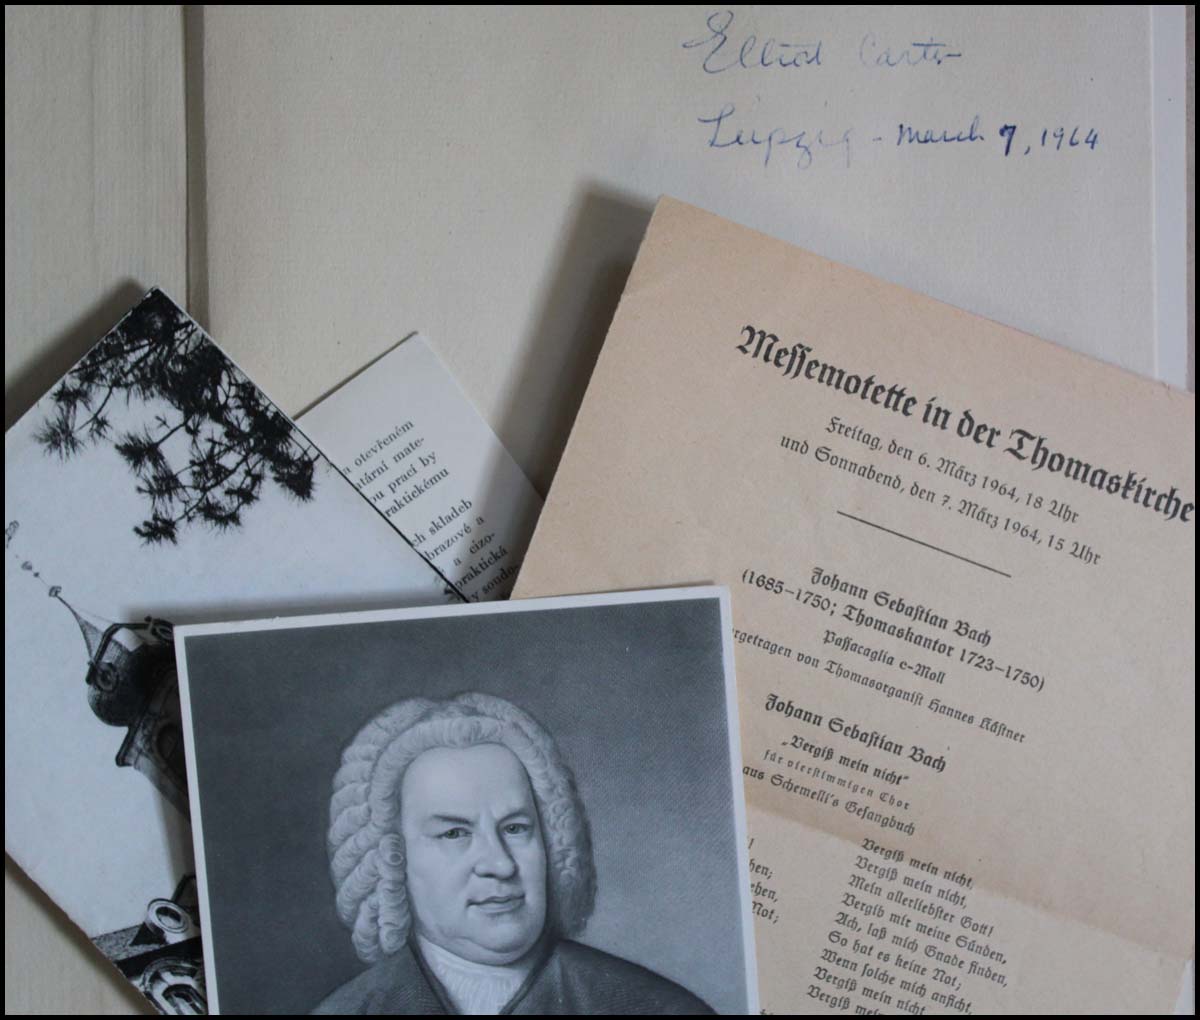 Elliott Carter
Leipzig - March 7, 1964
Messemotette in der Thomaskirche
Freitag, den 6. März 1964, 18 Uhr
und Sonnabend, den 7. März 1964, 15 Uhr
Johann Sebastian Bach
(1685–1750; Thomaskantor 1723–1750)
Passacaglia c-Moll
rgetragen von Thomasorganist Hannes Kästner
Johann Sebastian Bach
„Vergiß mein nicht"
für vierstimmigen Chor
aus Schemelli's Gesangbuch
Vergiß mein nicht,
Vergiß mein nicht,
Mein allerliebster Gott!
Vergib mir meine Sünden,
Ach, laß mich Gnade finden,
So hat es keine Not;
Wenn solche mich anficht,
Vergiß mein nicht
Vergiß mein
!
hen;
ehen,
Not;
a otevřeném
tární mate-
ou prací by
raktickému
ch skladeb
brazové a
é a cizo-
praktická
y soudo-